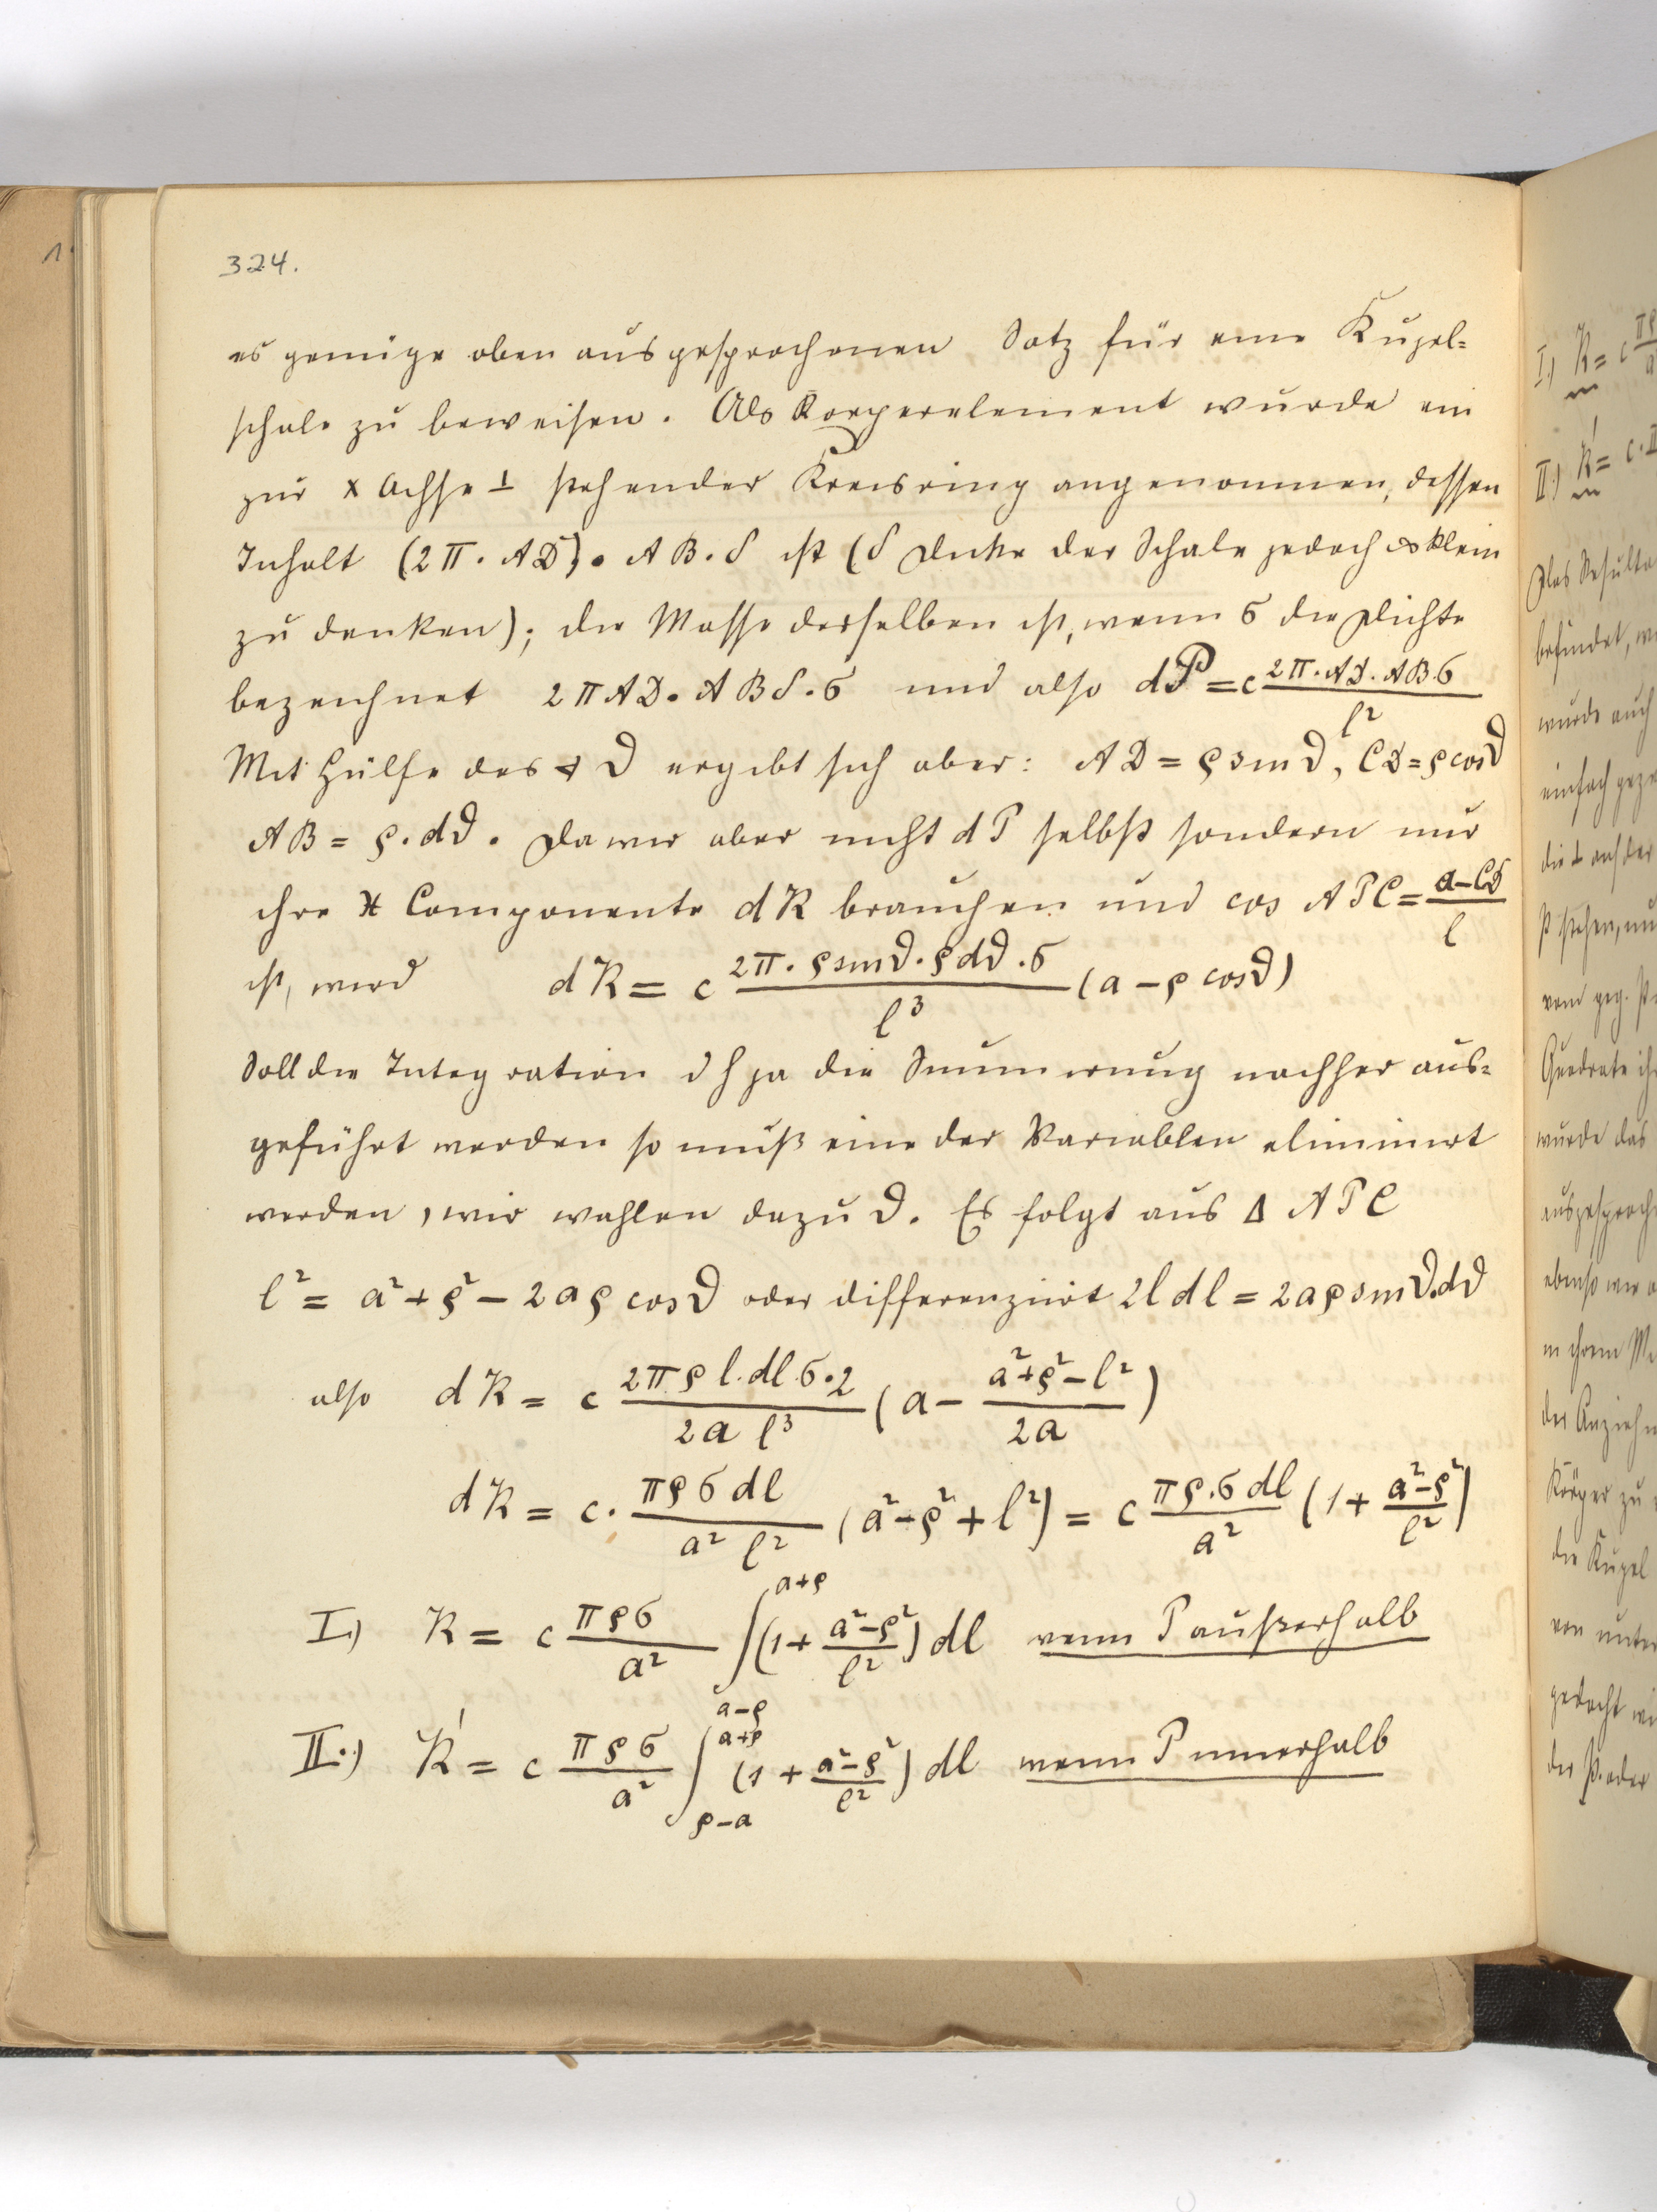 324.
es genüge oben ausgesprochenen Satz für eine Kugel-
schale zu beweisen. Als Koerperelement wurde ein
zur x Achse ⊥ stehender Kreisring angenommen, dessen
Inhalt (2π·AD)·AB·δ ist (δ Dicke der Schale jedoch ∞ klein
zu denken); die Masse desselben ist, wenn σ die Dichte
bezeichnet 2πAD·ABδ·σ und also dP = c 2π·AD·ABσ / l²
Mit Hülfe des ∢ ϑ ergibt sich aber: AD = ρ sin ϑ, CD = ρ cos ϑ
AB = ρ·dϑ. Da wir aber nicht dP selbst sondern nur
ihre X Componente dR brauchen und cos APC = a−CD / l
ist, wird dR = c 2π·ρ sin ϑ·ρ dϑ·σ / l³ (a − ρ cos ϑ)
Soll die Integration dh ja die Summirung nachher aus-
geführt werden so muß eine der Variablen eliminirt
werden, wir wahlen dazu ϑ. Es folgt aus Δ APC
l² = a² + ρ² − 2aρ cos ϑ oder differenziirt 2l dl = 2aρ sin ϑ.dϑ
also dR = c 2πρ l.dl.σ·2 / 2a l³ (a − a²+ρ²−l² / 2a)
dR = c· πρσ dl / a² l² (a²−ρ²+l²) = c πρ.σ dl / a² (1 + a²−ρ² / l²)
I.) R = c πρσ / a² ∫_{a−ρ}^{a+ρ} (1 + a²−ρ² / l²) dl wenn P außerhalb
II.) R' = c πρσ / a² ∫_{ρ−a}^{a+ρ} (1 + a²−ρ² / l²) dl wenn P innerhalb
I.) R = c πρ
II.) R' = c·
Das Resulta
befindet,
wurde auch
einfach
die ⊥ auf der
P stehen,
vom geg.
Quadrate
wurde das
ausgesproch
ebenso wie
in ihrem
der Anzieh
Körper zu
die Kugel
von unter
gedacht
der P. oder